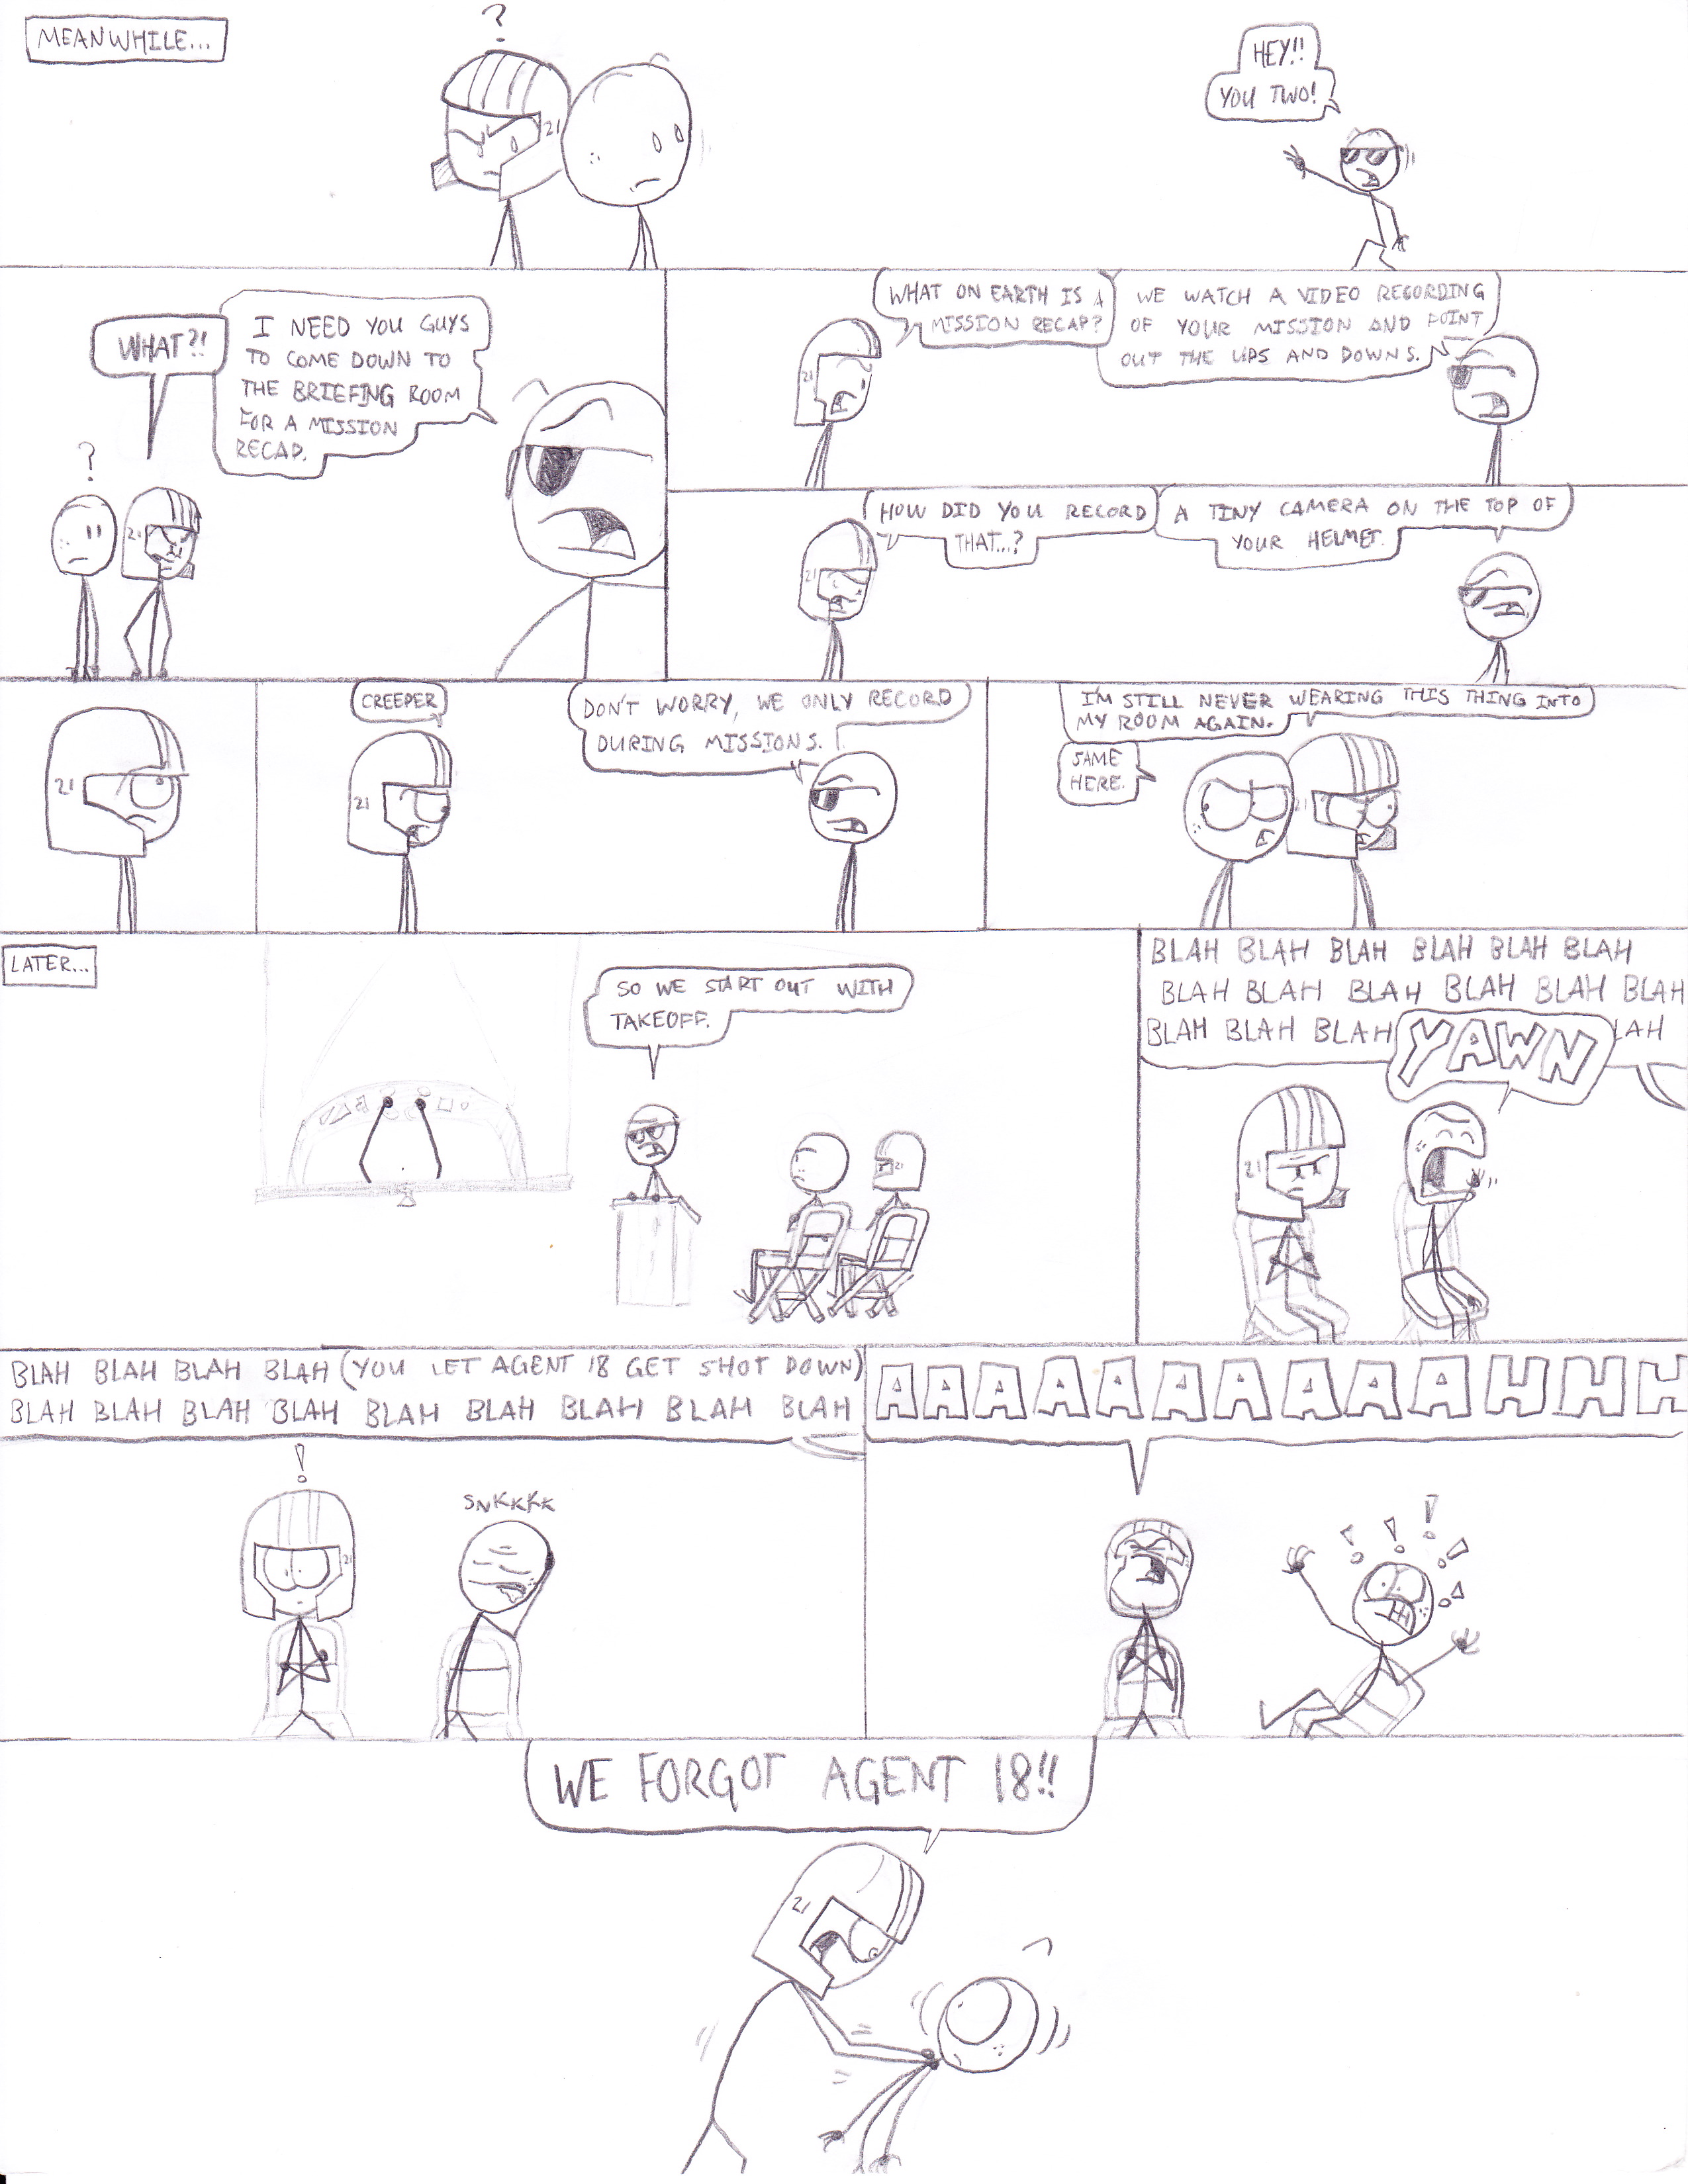 MEANWHILE...
?
21
HEY!!
YOU TWO!
WHAT?!
I NEED YOU GUYS
TO COME DOWN TO
THE BRIEFING ROOM
FOR A MISSION
RECAP.
?
21
WHAT ON EARTH IS A
MISSION RECAP?
WE WATCH A VIDEO RECORDING
OF YOUR MISSION AND POINT
OUT THE UPS AND DOWNS.
21
HOW DID YOU RECORD
THAT...?
A TINY CAMERA ON THE TOP OF
YOUR HELMET.
21
21
CREEPER
DON'T WORRY, WE ONLY RECORD
DURING MISSIONS.
21
I'M STILL NEVER WEARING THIS THING INTO
MY ROOM AGAIN.
SAME
HERE.
21
LATER...
SO WE START OUT WITH
TAKEOFF.
21
BLAH BLAH BLAH BLAH BLAH BLAH
BLAH BLAH BLAH BLAH BLAH BLAH
BLAH BLAH BLAH YAWN LAH
21
BLAH BLAH BLAH BLAH (YOU LET AGENT 18 GET SHOT DOWN)
BLAH BLAH BLAH BLAH BLAH BLAH BLAH BLAH BLAH
!
21
SNKKKK
AAAAAAAAAAHHH
! ! ! ! !
WE FORGOT AGENT 18!!
21